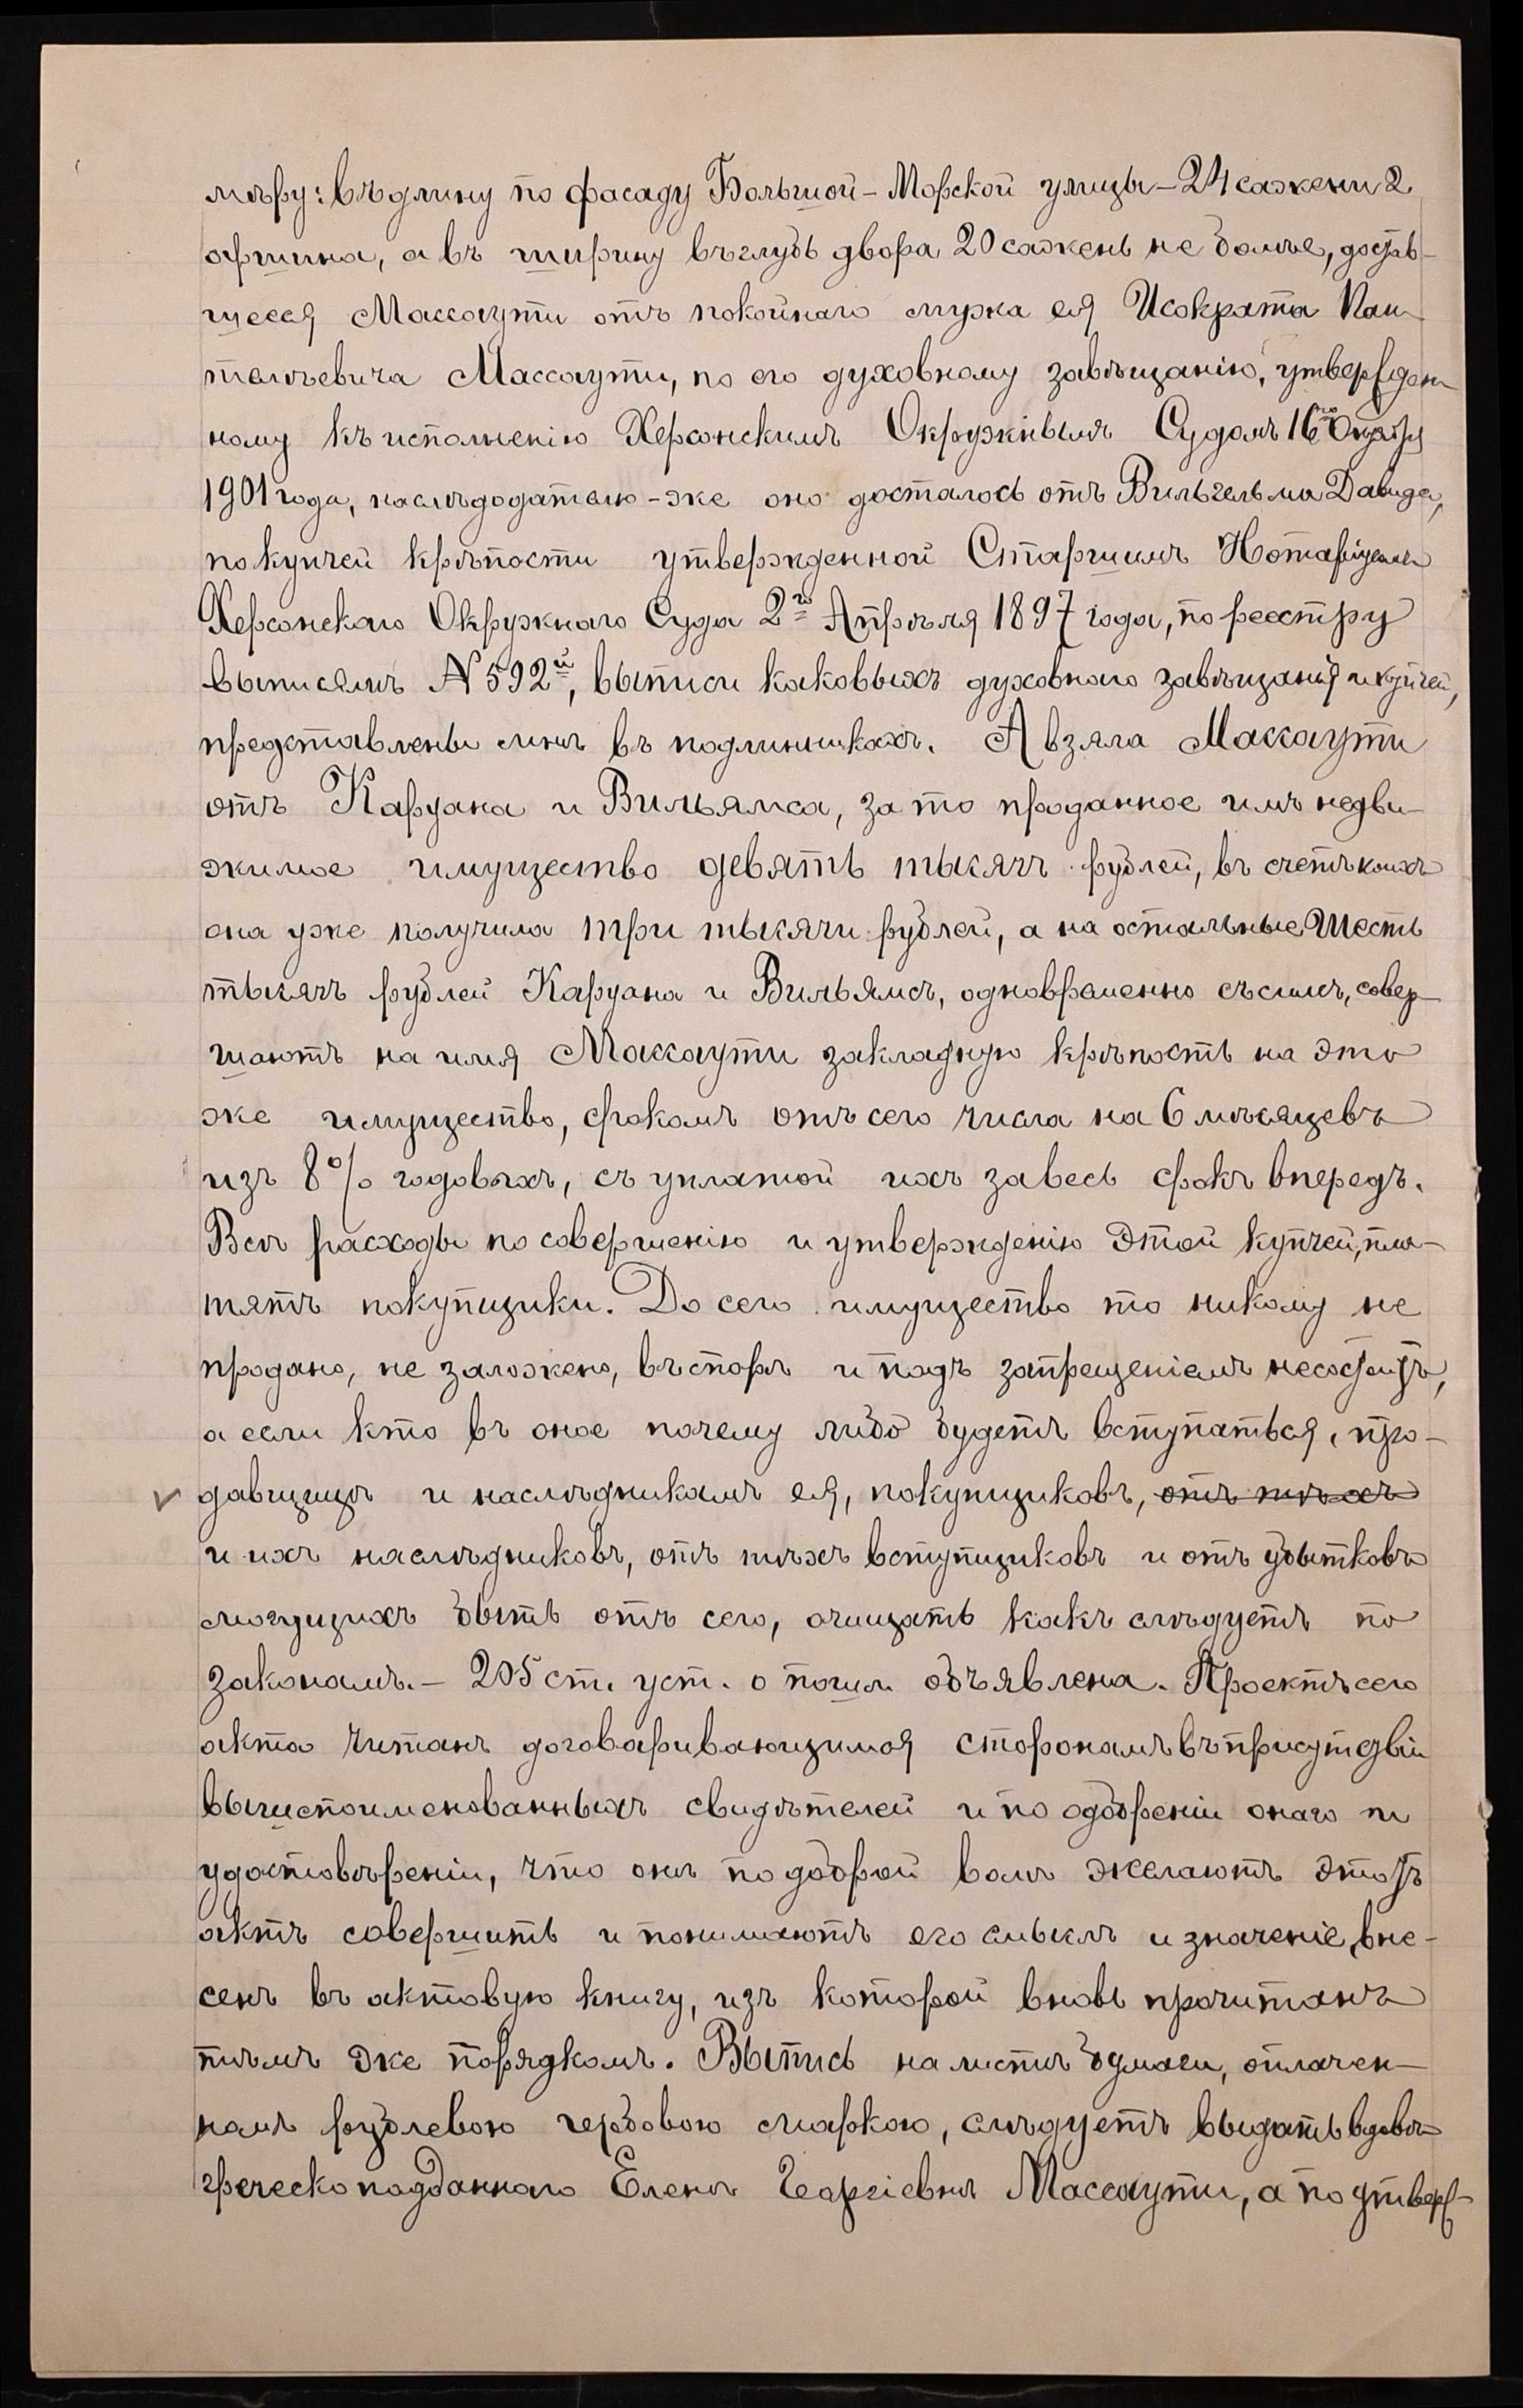 мѣру: въ длину по фасаду Большой-Морской улицы – 24 сажени 2
аршина, а въ ширину въ глубь двора 20 сажень не болѣе, достав-
шееся Массаути отъ покойнаго мужа ея Исократа Пан-
телѣевича Массаути, по его духовному завѣщанію, утвержден-
ному къ исполненію Херсонскимъ Окружнымъ Судомъ 16го Октября
1901 года, наслѣдодателю-же оно досталось отъ Вильгельма Давида,
по купчей крѣпости утвержденной Старшимъ Нотаріусомъ
Херсонскаго Окружнаго Суда 2го Апрѣля 1897 года, по реестру
выписямъ № 592й, выписи каковыхъ духовнаго завѣщанія и купчей,
представлены мнѣ въ подлинникахъ. А взяла Массаути
отъ Каруана и Вильямса, за то проданное имъ недви-
жимое имущество девять тысячъ рублей, въ счетъ коихъ
она уже получила три тысячи рублей, а на остальные шесть
тысячъ рублей Каруана и Вильямсъ, одновременно съ симъ, совер-
шаютъ на имя Массаути закладную крѣпость на это
же имущество, срокомъ отъ сего числа на 6 мѣсяцевъ
изъ 8% годовыхъ, съ уплатой ихъ за весь срокъ впередъ.
Всѣ расходы по совершенію и утвержденію этой купчей, пла-
тятъ покупщики. До сего имущество то никому не
продано, не заложено, въ спорѣ и подъ запрещеніемъ не состоитъ,
а если кто въ оное почему либо будетъ вступаться, про-
давщицѣ и наслѣдникамъ ея, покупщиковъ, отъ тѣхъ
и ихъ наслѣдниковъ, отъ тѣхъ вступщиковъ и отъ убытковъ
могущихъ быть отъ сего, очищать какъ слѣдуетъ по
законамъ. – 205 ст. уст. о пошл. объявлена. Проектъ сего
акта читанъ договаривающимся сторонамъ въ присутствіи
вышепоименованныхъ свидѣтелей и по одобреніи онаго и
удостовѣреніи, что они по доброй волѣ желаютъ этотъ
актъ совершить и понимаютъ его смыслъ и значеніе, вне-
сенъ въ актовую книгу, изъ которой вновь прочитанъ
тѣмъ же порядкомъ. Выпись на листѣ бумаги, оплачен-
номъ рублевою гербовою маркою, слѣдуетъ выдать вдовѣ
греческоподданнаго Еленѣ Георгіевнѣ Массаути, а по утверж-